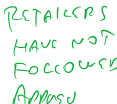 RETAILERS
HAVE NOT
FOLLOWED